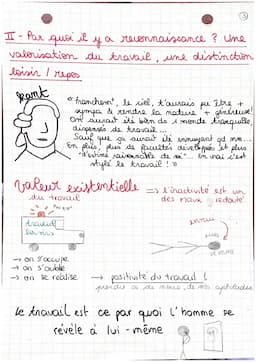 3
II - Par quoi il y a reconnaissance ? Une
valorisation du travail, une distinction
loisir / repos
Kant
" franchem°, le ciel, t'aurais pu être +
sympa & rendre la nature + généreuse!
On aurait été bien ds 1 monde tranquille,
dispensés de travail...
Sauf que ça aurait été ennuyant qd mm...
En plus, plus de facultés développés et plus
d'estime raisonable de soi"... En vrai c'est
stylé le travail ! »
Valeur existentielle
du travail
=> l'inactivité est un
des maux + redouté
travail
ennui
→ on s'occupe
→ on s'oublie
→ on se réalise
→ positivité du travail !
prendre cs de nous, de nos aptitudes
Le travail est ce par quoi l'homme se
révèle à lui-même